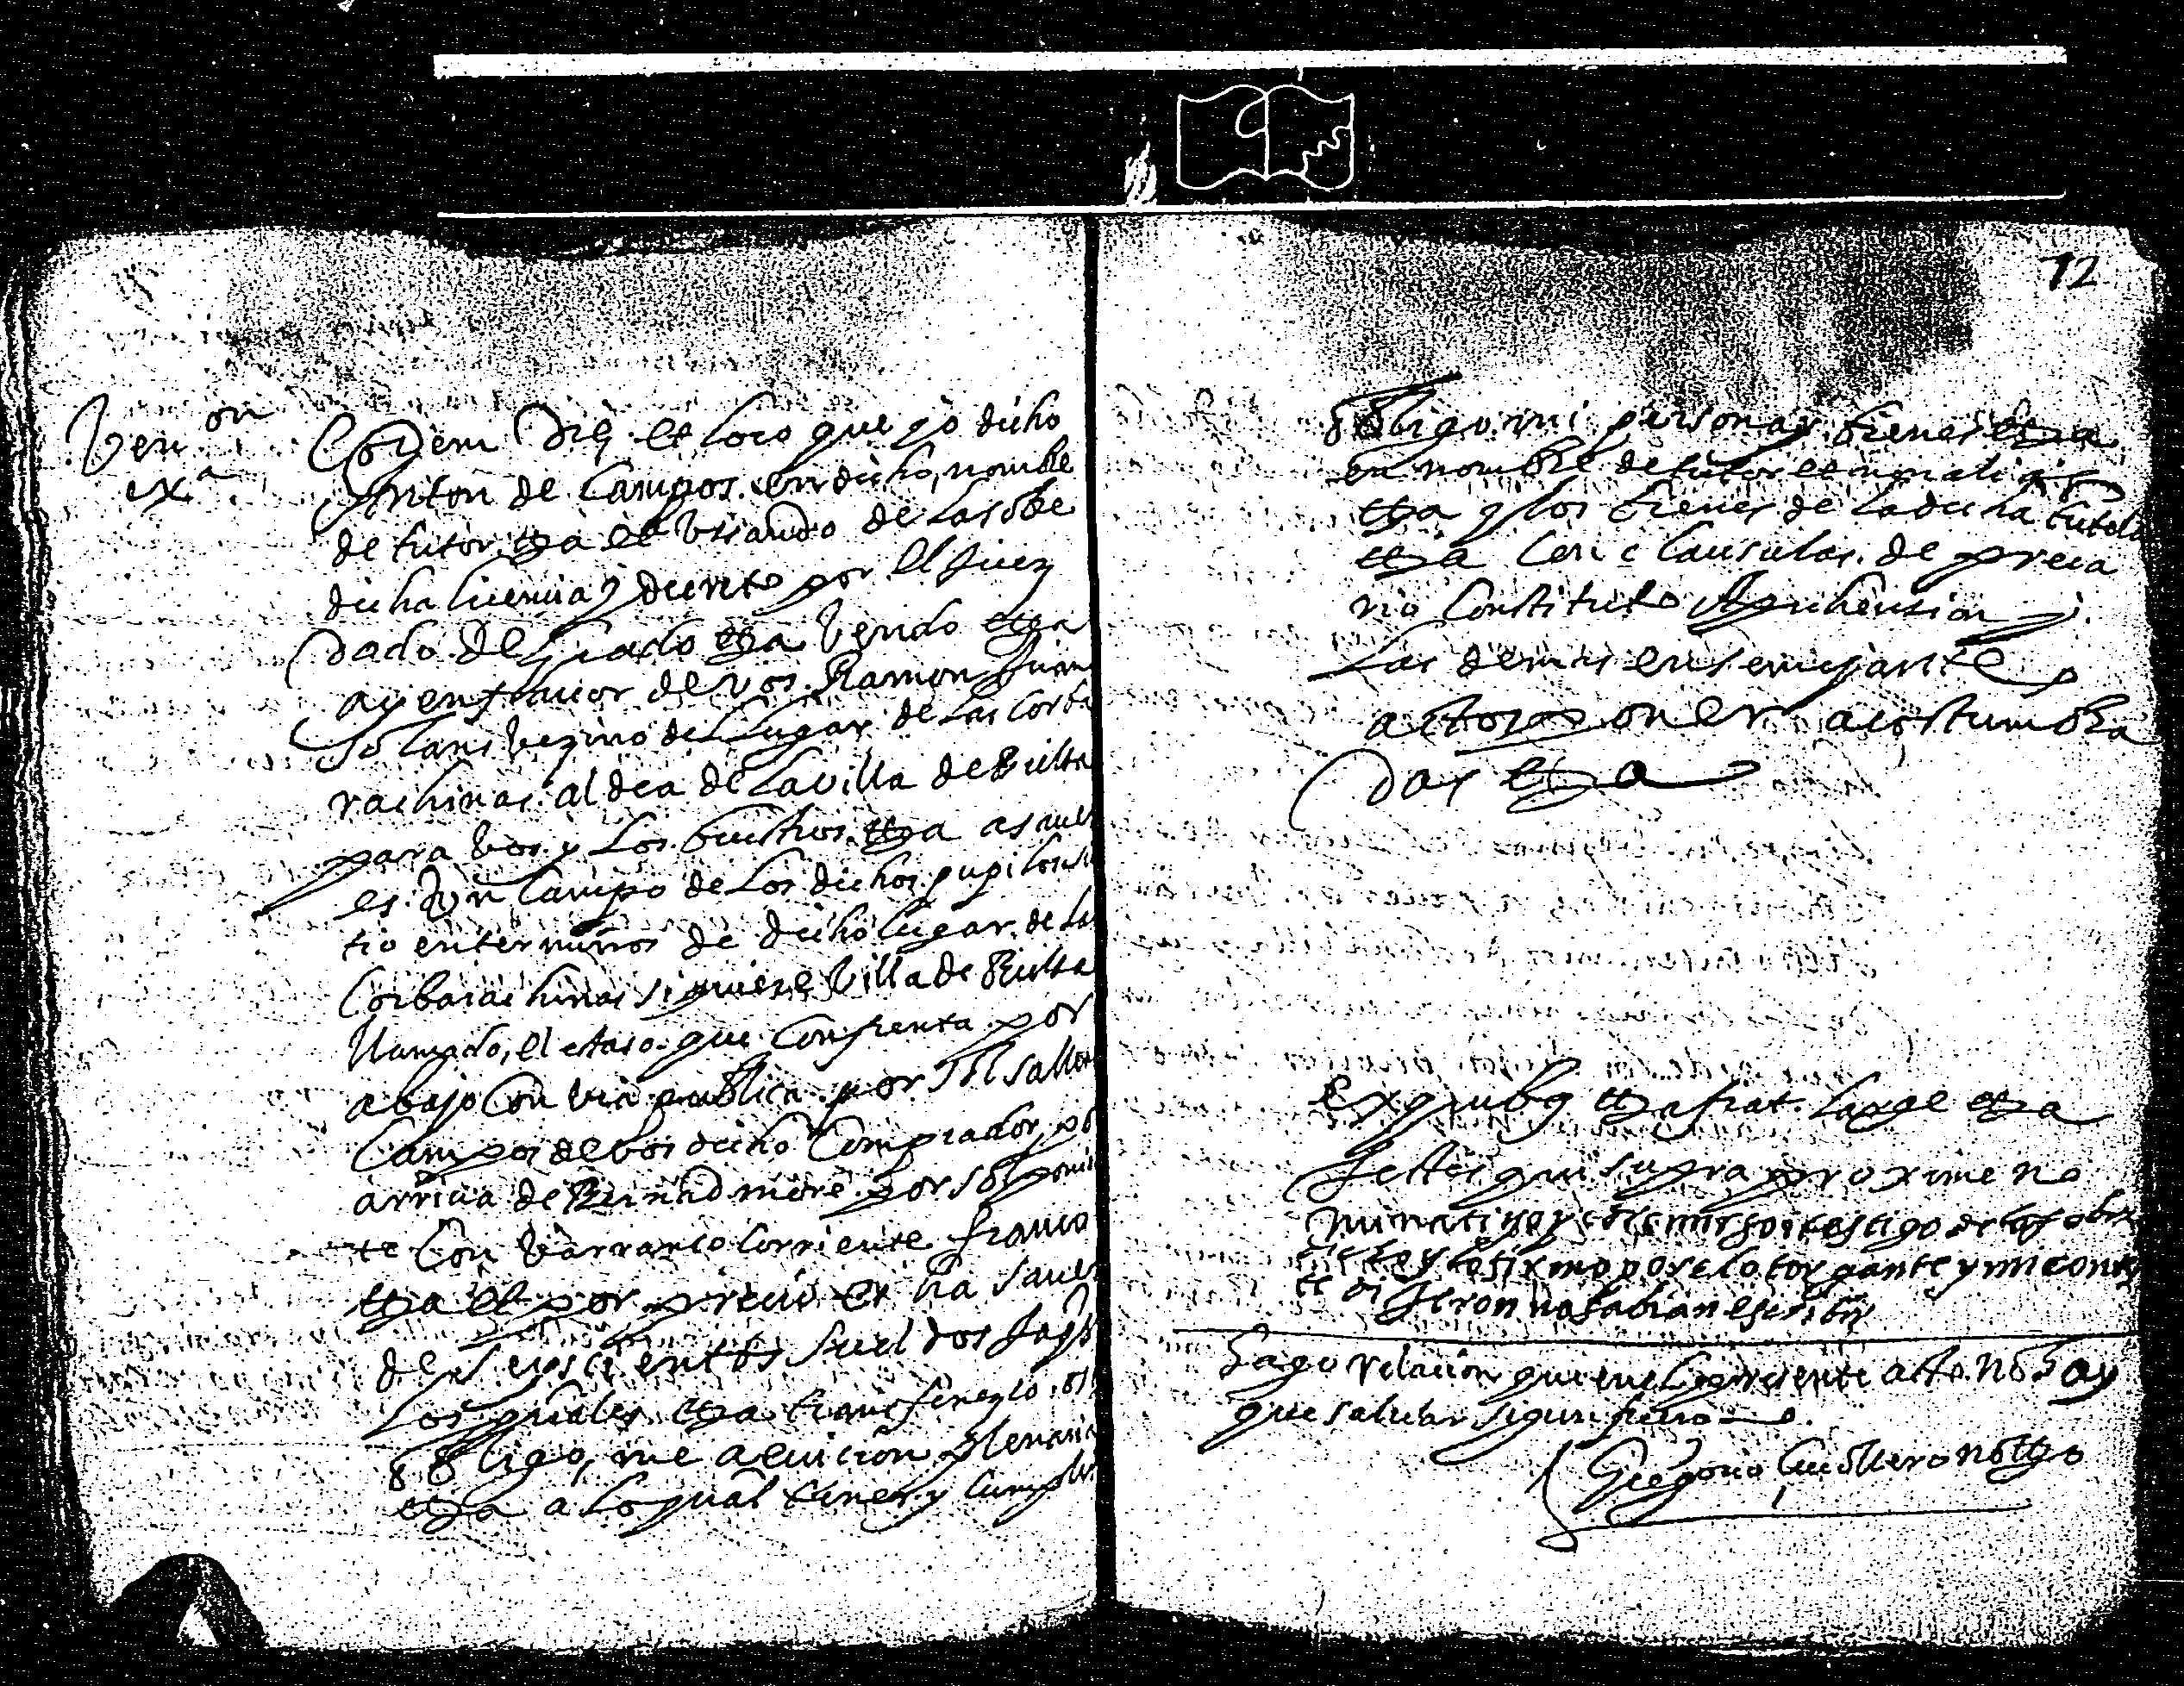 72
Ven on
exa
Eodem Die et loco que yo dicho
Anton de Campos en dicho nombre
de tutor etta et usando de la sobre
dicha licencia y decreto por el Juez
dado De grado etta Vendo etta
a y en favor de vos Ramon Juan
Solans Vezino del Lugar de las Corba
rachinas aldea de la villa de
para Vos y Los Vuestros etta asaver
es Un Campo de Los dichos pupilos si
tio en terminos de dicho lugar de las
Corbarachinas siquiere Villa de
llamado, el que Confrenta por
abajo Con via publica por Sol sallente
Campos de vos dicho Comprador por
arriva de por Sol ponien
te Con barranco Corriente franco
etta et por precio es ha saver
de seyscientos sueldos Jaqs
Los quales etta transfirezco
obligo me a eviccion plenaria
etta a lo qual tener y cumplir
obligo mi persona y bienes etta
en nombre de tutor
etta y los bienes de la dicha tutela
etta Con clausulas de preca
rio Constituto Aprehension y
Las demas en semejantes
actos poner acostumbra
das etta
Ex quibus etta fiat large etta
Testes qui supra proxime no
minati yo soi testigo de lo sobre
dicho y lo firmo por el otorgante y mi con
te di Jeron no sabian escribir
Hago relacion que en el presente acto no hay
que salvar segun fuero
Gregorio notto